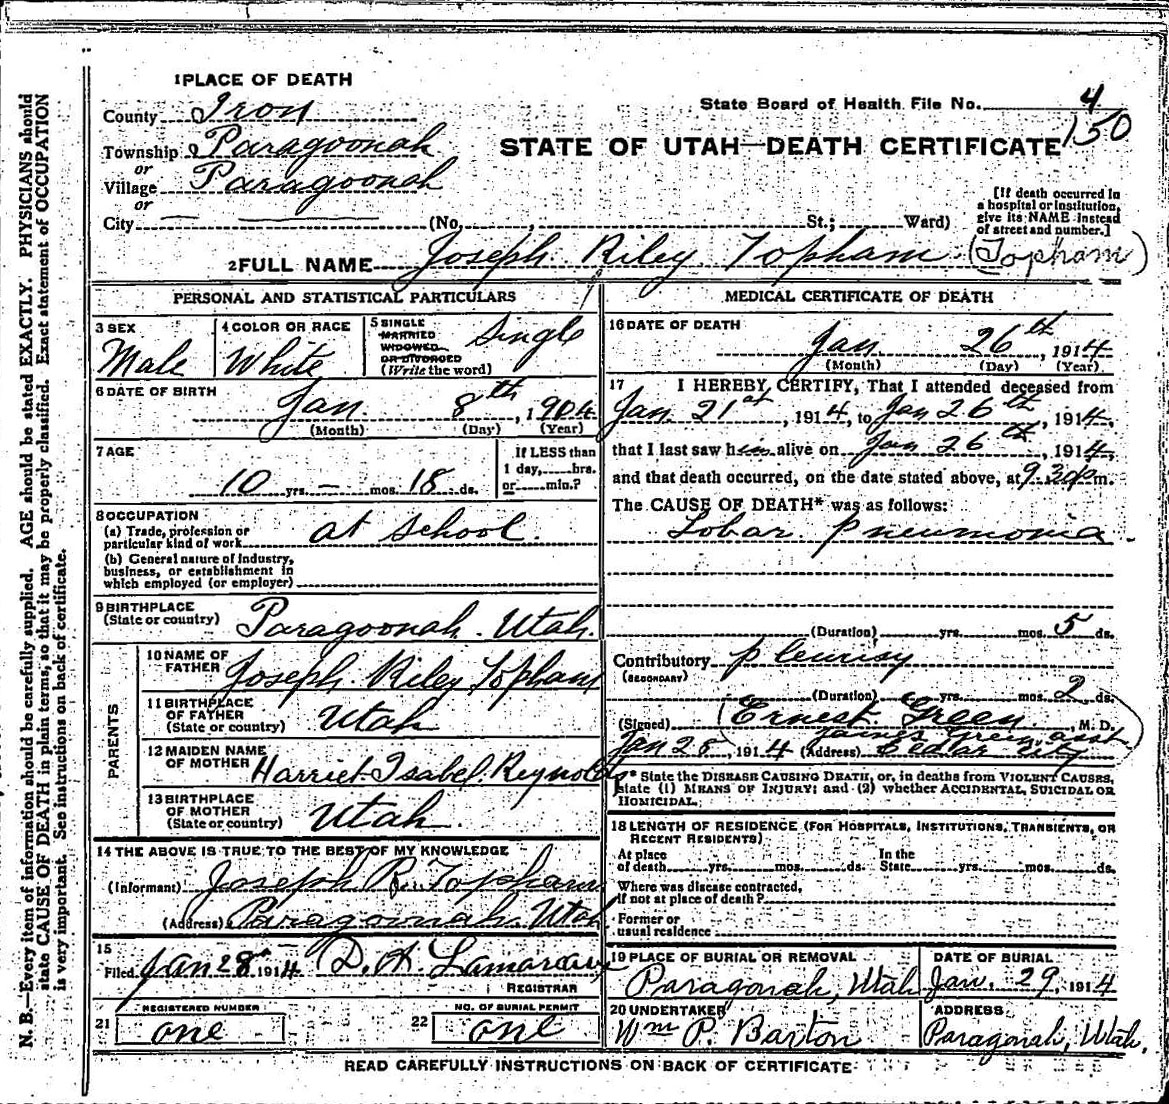 1 PLACE OF DEATH
County Iron
State Board of Health File No. 4
150
Township Paragoonah
or
Village Paragoonah
or
STATE OF UTAH—DEATH CERTIFICATE
City — (No. , St.; Ward)
[If death occurred in
a hospital or institution,
give its NAME instead
of street and number.]
2 FULL NAME Joseph Riley Topham (Topham)
PERSONAL AND STATISTICAL PARTICULARS
3 SEX
Male
4 COLOR OR RACE
White
5 SINGLE
MARRIED
WIDOWED
OR DIVORCED
(Write the word)
Single
6 DATE OF BIRTH
Jan. 8th, 1904
(Month) (Day) (Year)
7 AGE
10 yrs. — mos. 18 ds.
If LESS than
1 day, hrs.
or min.?
8 OCCUPATION
(a) Trade, profession or
particular kind of work at school.
(b) General nature of industry,
business, or establishment in
which employed (or employer)
9 BIRTHPLACE
(State or country) Paragoonah Utah.
PARENTS
10 NAME OF
FATHER Joseph Riley Topham
11 BIRTHPLACE
OF FATHER
(State or country) Utah
12 MAIDEN NAME
OF MOTHER Harriet Isabel Reynolds
13 BIRTHPLACE
OF MOTHER
(State or country) Utah.
14 THE ABOVE IS TRUE TO THE BEST OF MY KNOWLEDGE
(Informant) Joseph R. Topham
(Address) Paragoonah Utah
15
Filed Jan 28 1914 D. A. Lamoreaux
REGISTRAR
REGISTERED NUMBER
21 one
NO. OF BURIAL PERMIT
22 one
MEDICAL CERTIFICATE OF DEATH
16 DATE OF DEATH
Jan 26th, 1914
(Month) (Day) (Year)
17 I HEREBY CERTIFY, That I attended deceased from
Jan. 21st, 1914, to Jan 26th, 1914,
that I last saw him alive on Jan 26th, 1914,
and that death occurred, on the date stated above, at 9.30p m.
The CAUSE OF DEATH* was as follows:
Lobar pneumonia.
(Duration) yrs. mos. 5 ds.
Contributory pleurisy
(SECONDARY)
(Duration) yrs. mos. 2 ds.
(Signed) Ernest Green, M. D.
James Green asst
Jan 28 1914 (Address) Cedar City
* State the DISEASE CAUSING DEATH, or, in deaths from VIOLENT CAUSES,
state (1) MEANS OF INJURY; and (2) whether ACCIDENTAL, SUICIDAL OR
HOMICIDAL.
18 LENGTH OF RESIDENCE (FOR HOSPITALS, INSTITUTIONS, TRANSIENTS, OR
RECENT RESIDENTS)
At place
of death yrs. mos. ds.
In the
State yrs. mos. ds.
Where was disease contracted,
if not at place of death?
Former or
usual residence
19 PLACE OF BURIAL OR REMOVAL
Paragonah, Utah
DATE OF BURIAL
Jan. 29, 1914
20 UNDERTAKER
Wm P. Barton
ADDRESS
Paragonah, Utah.
READ CAREFULLY INSTRUCTIONS ON BACK OF CERTIFICATE
N. B.—Every item of information should be carefully supplied. AGE should be stated EXACTLY. PHYSICIANS should
state CAUSE OF DEATH in plain terms, so that it may be properly classified. Exact statement of OCCUPATION
is very important. See instructions on back of certificate.